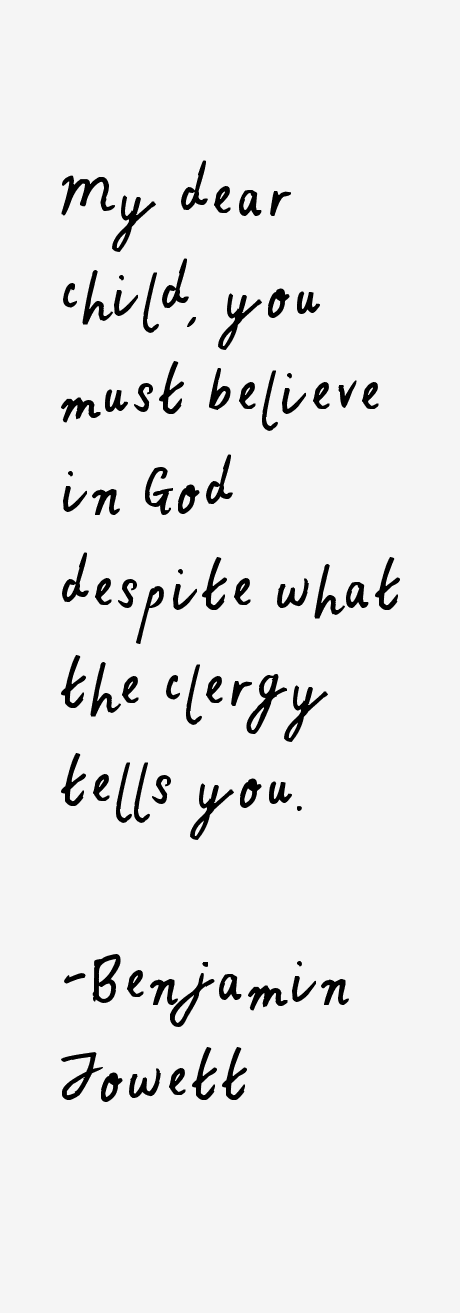 My dear
child, you
must believe
in God
despite what
the clergy
tells you.
-Benjamin
Jowett